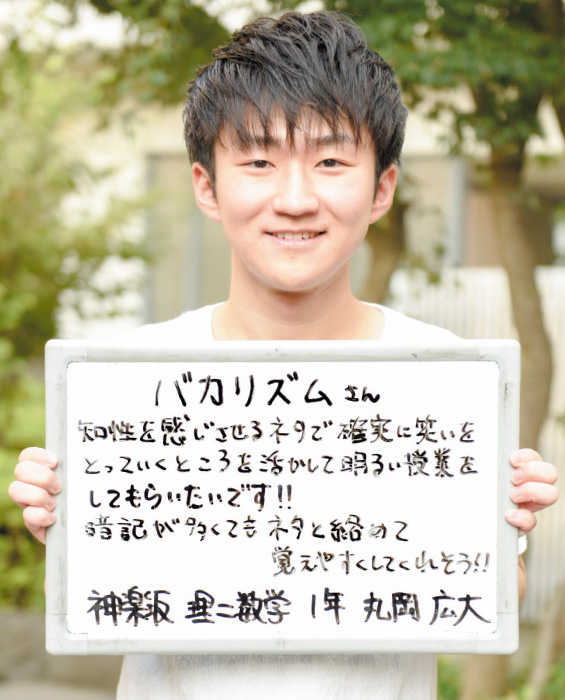 バカリズムさん
知性を感じさせるネタで確実に笑いを
とっていくところを活かして明るい授業を
してもらいたいです!!
暗記が多くてもネタと絡めて
覚えやすくしてくれそう!!
神楽坂 理二数学 1年 丸岡 広大